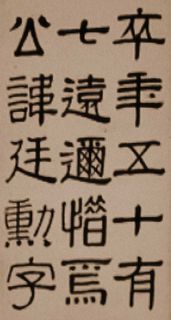 卒年五十有
七遠邇惜焉
公諱廷勳字